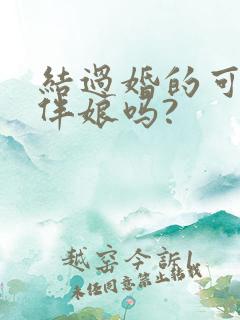 結過婚的可
伴娘吗?
越窑今訴
未经同意禁止转载